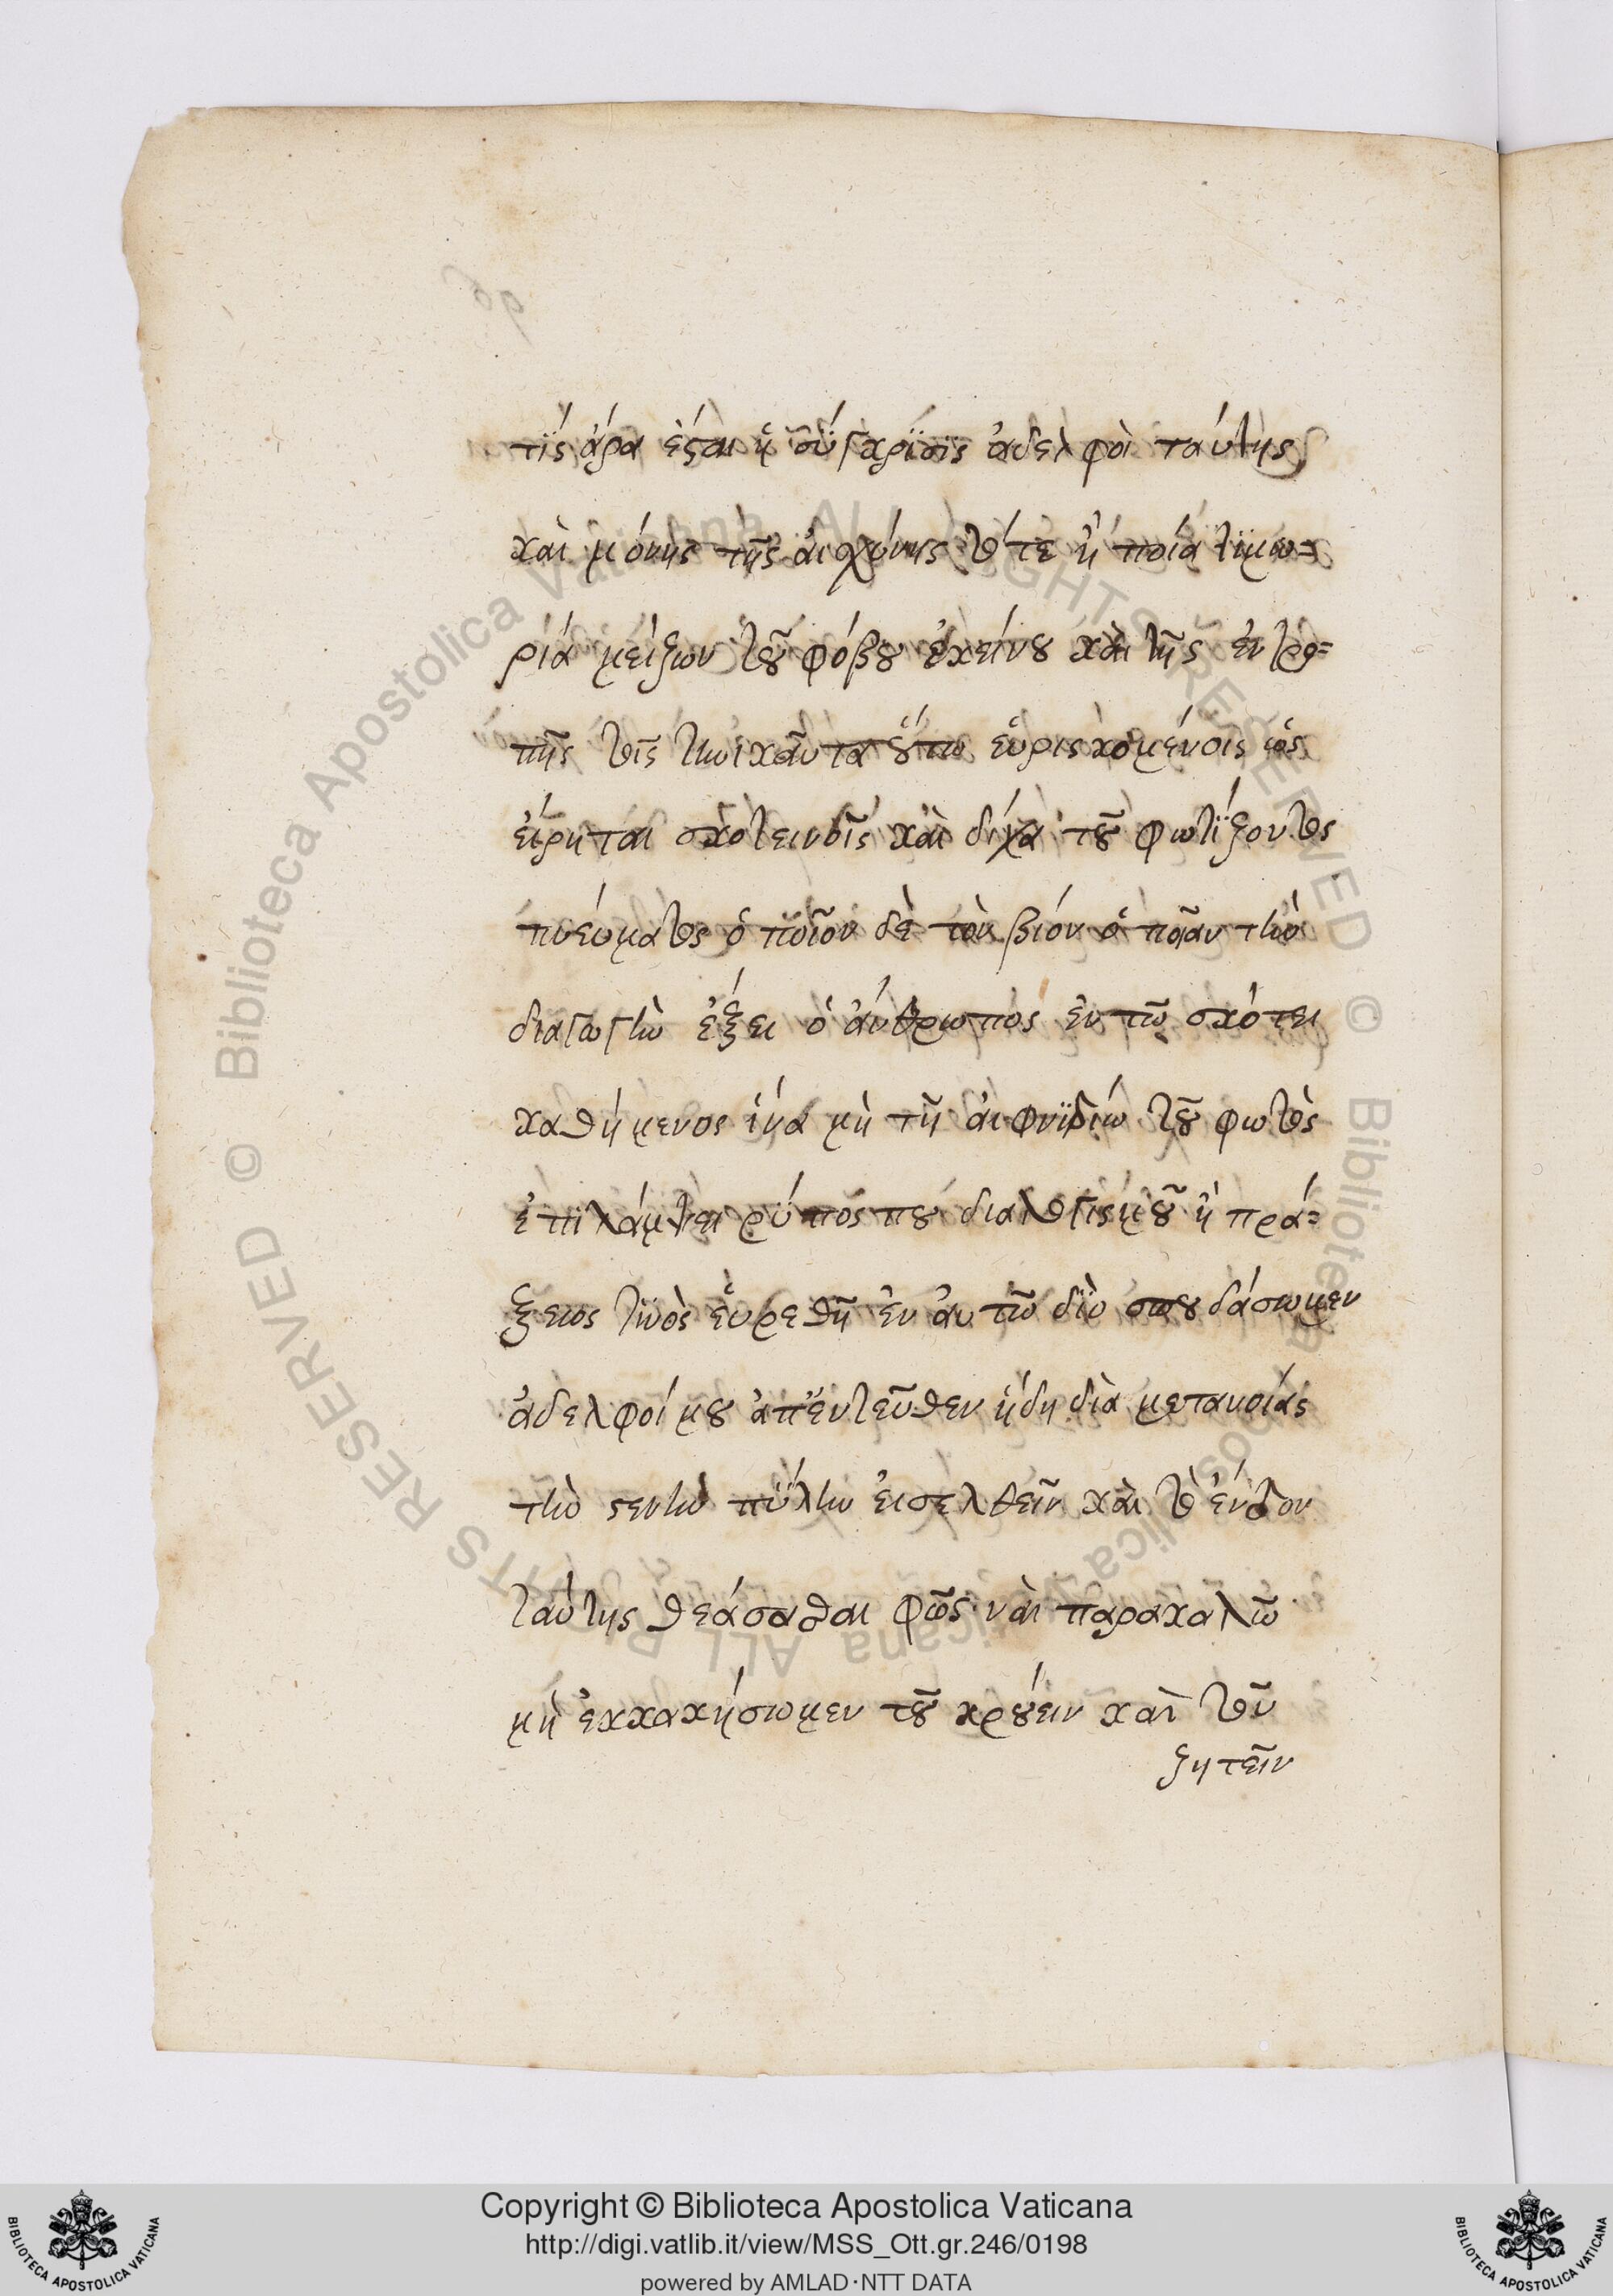 τϊς ἄρα ἔσται ἡ σύγκρϊσϊς ἀδελφοὶ ταύτης
καὶ μόνης τῆς αἰσχύνης τότε ἢ ποία τϊμω=
ρία μείζων τοῦ φόβου ἐκείνου καὶ τῆς ἐντρο=
πῆς τοῖς τηνικαῦτα οὕτω εὑρισκομένοις ὡς
εἴρηται σκοτεινοῖς καὶ δίχα τοῦ φωτΐζοντος
πνεύματος ὁποῖον δὲ τὸν βίον ὁποίαν τὴν
διαγωγὴν ἕξει ὁ ἄνθρωπος ἐν τῶ σκότει
καθήμενος ἵνα μὴ τῆ αἰφνϊδίω τοῦ φωτὸς
ἐπϊλάμψει ρύπος που διαλογισμοῦ ἢ πρά=
ξεως τϊνὸς εὑρεθῆ ἐν αὐτῶ δϊὸ σπουδάσωμεν
ἀδελφοί μου ἀπ' ἐντεῦθεν ἤδη διὰ μετανοίας
τὴν στενὴν πύλην εἰσελθεῖν καὶ τὸ ἔνδον
ταύτης θεάσασθαι φῶς· ναὶ παρακαλῶ
μὴ ἐκκακήσωμεν τοῦ κρούειν καὶ τοῦ
ζητεῖν
Copyright © Biblioteca Apostolica Vaticana
http://digi.vatlib.it/view/MSS_Ott.gr.246/0198
powered by AMLAD·NTT DATA
BIBLIOTECA APOSTOLICA VATICANA
BIBLIOTECA APOSTOLICA VATICANA
© Biblioteca Apostolica Vaticana ALL RIGHTS RESERVED
© Biblioteca Apostolica Vaticana ALL RIGHTS RESERVED